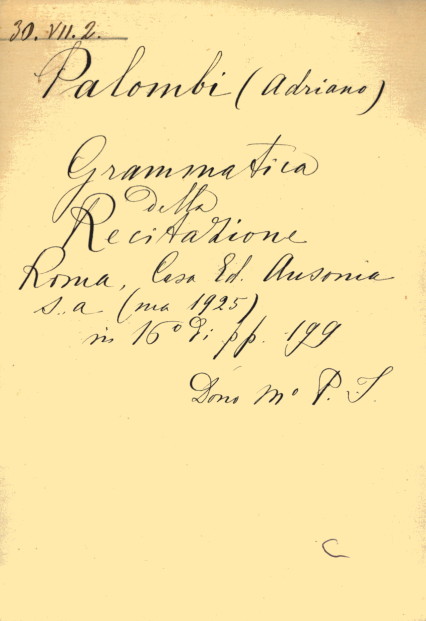 30. VII. 2.
Palombi (Adriano)
Grammatica
della
Recitazione
Roma, Casa Ed. Ausonia
s. a (ma 1925)
in 16° di pp. 199
Dono M° P. S.
C